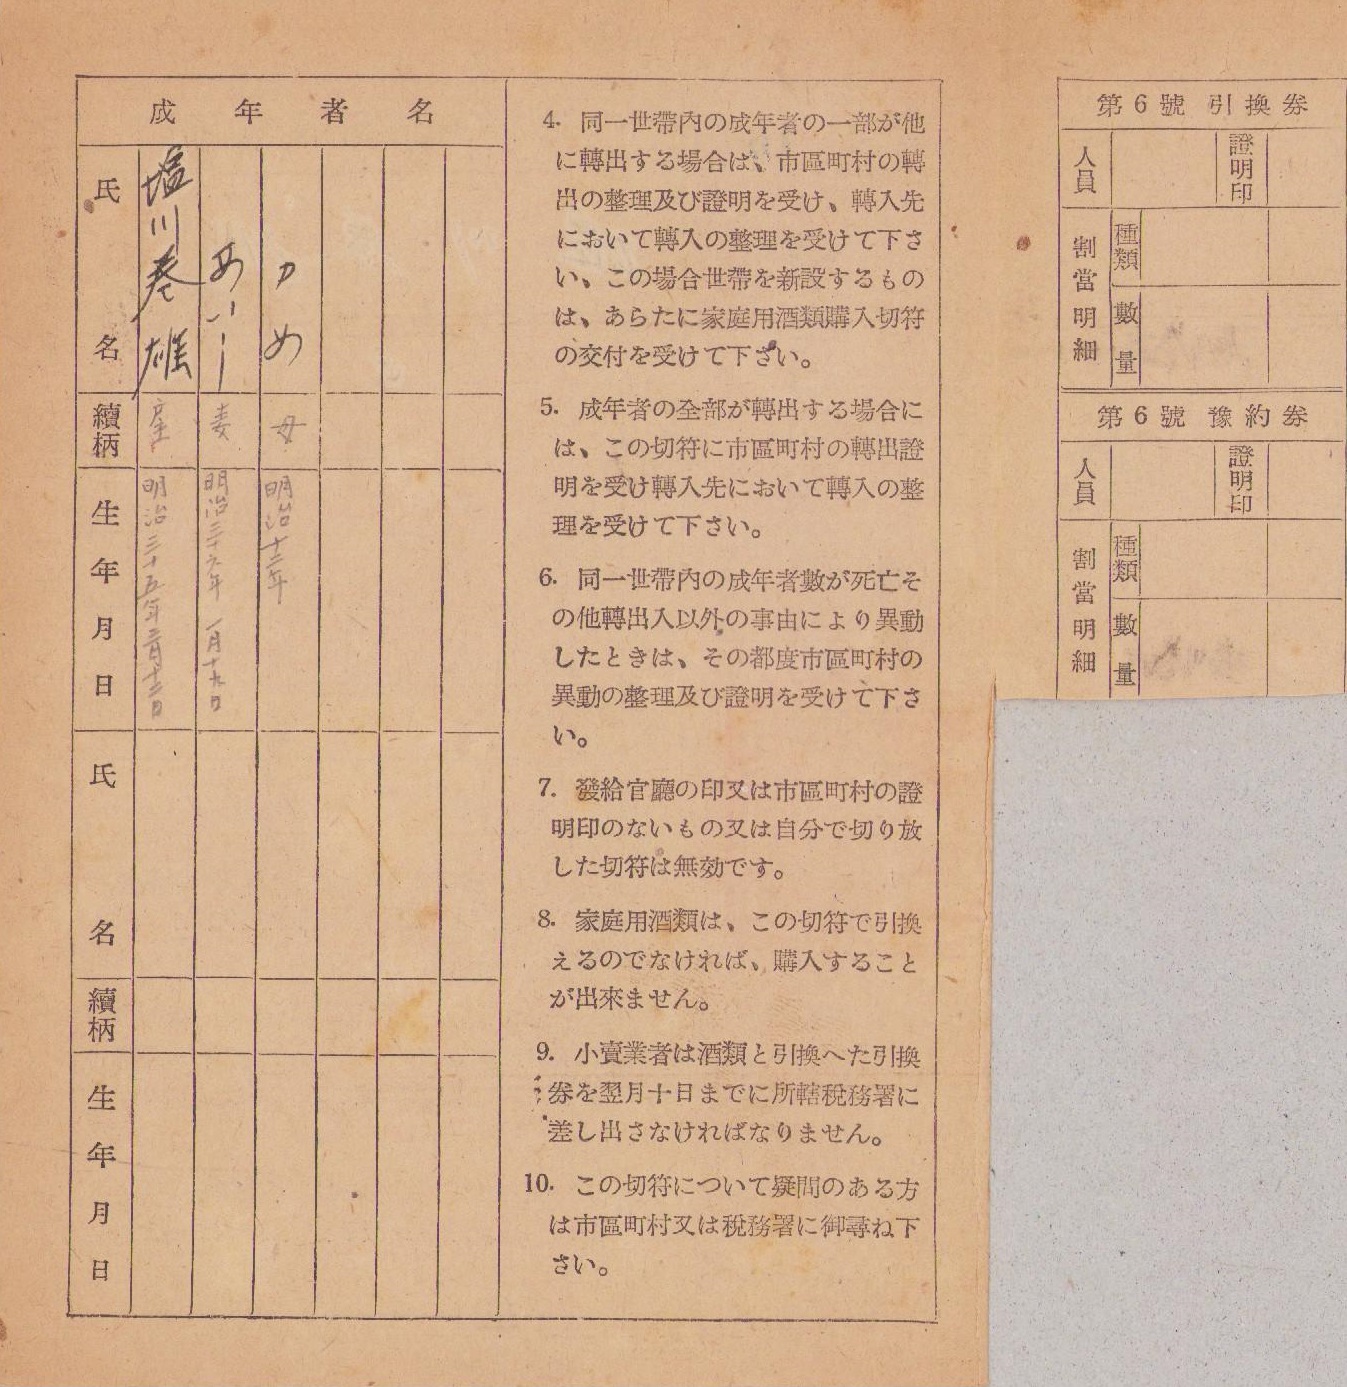 成年者名
氏名
塩川春雄
あいー
カめ
續柄
妻
母
生年月日
明治三十五年二月十三日
明治三十六年一月十九日
明治十二年
氏名
續柄
生年月日
4. 同一世帶內の成年者の一部が他
に轉出する場合は、市區町村の轉
出の整理及び證明を受け、轉入先
において轉入の整理を受けて下さ
い、この場合世帶を新設するもの
は、あらたに家庭用酒類購入切符
の交付を受けて下さい。
5. 成年者の全部が轉出する場合に
は、この切符に市區町村の轉出證
明を受け轉入先において轉入の整
理を受けて下さい。
6. 同一世帶內の成年者數が死亡そ
の他轉出入以外の事由により異動
したときは、その都度市區町村の
異動の整理及び證明を受けて下さ
い。
7. 發給官廳の印又は市區町村の證
明印のないもの又は自分で切り放
した切符は無効です。
8. 家庭用酒類は、この切符で引換
えるのでなければ、購入すること
が出來ません。
9. 小賣業者は酒類と引換へた引換
券を翌月十日までに所轄稅務署に
差し出さなければなりません。
10. この切符について疑問のある方
は市區町村又は稅務署に御尋ね下
さい。
第6號 引換券
人員
證明印
割當明細
種類
數量
第6號 豫約券
人員
證明印
割當明細
種類
數量